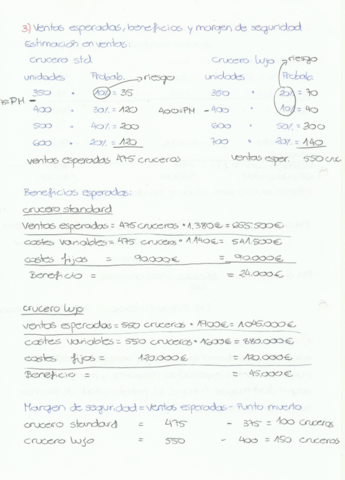 3) Ventas esperadas, beneficios y margen de seguridad
Estimación en ventas:
crucero std crucero lujo riesgo
unidades Probab. riesgo unidades Probab.
350 · 10% = 35 350 · 20% = 70
=PM
400 · 30% = 120 400=PM 400 · 10% = 40
500 · 40% = 200 600 · 50% = 300
600 · 20% = 120 700 · 20% = 140
ventas esperadas 475 cruceros ventas esper. 550 cruc
Beneficios esperados:
crucero standard
Ventas esperadas = 475 cruceros · 1.380€ = 655.500€
costes variables = 475 cruceros · 1.140€ = 541.500€
costes fijos = 90.000€ = 90.000€
Beneficio = = 24.000€
crucero lujo
ventas esperadas = 550 cruceros · 1900€ = 1.045.000€
costes variables = 550 cruceros · 1600€ = 880.000€
costes fijos = 120.000€ = 120.000€
Beneficio = = 45.000€
Margen de seguridad = ventas esperadas - Punto muerto
crucero standard = 475 - 375 = 100 cruceros
crucero lujo = 550 - 400 = 150 cruceros